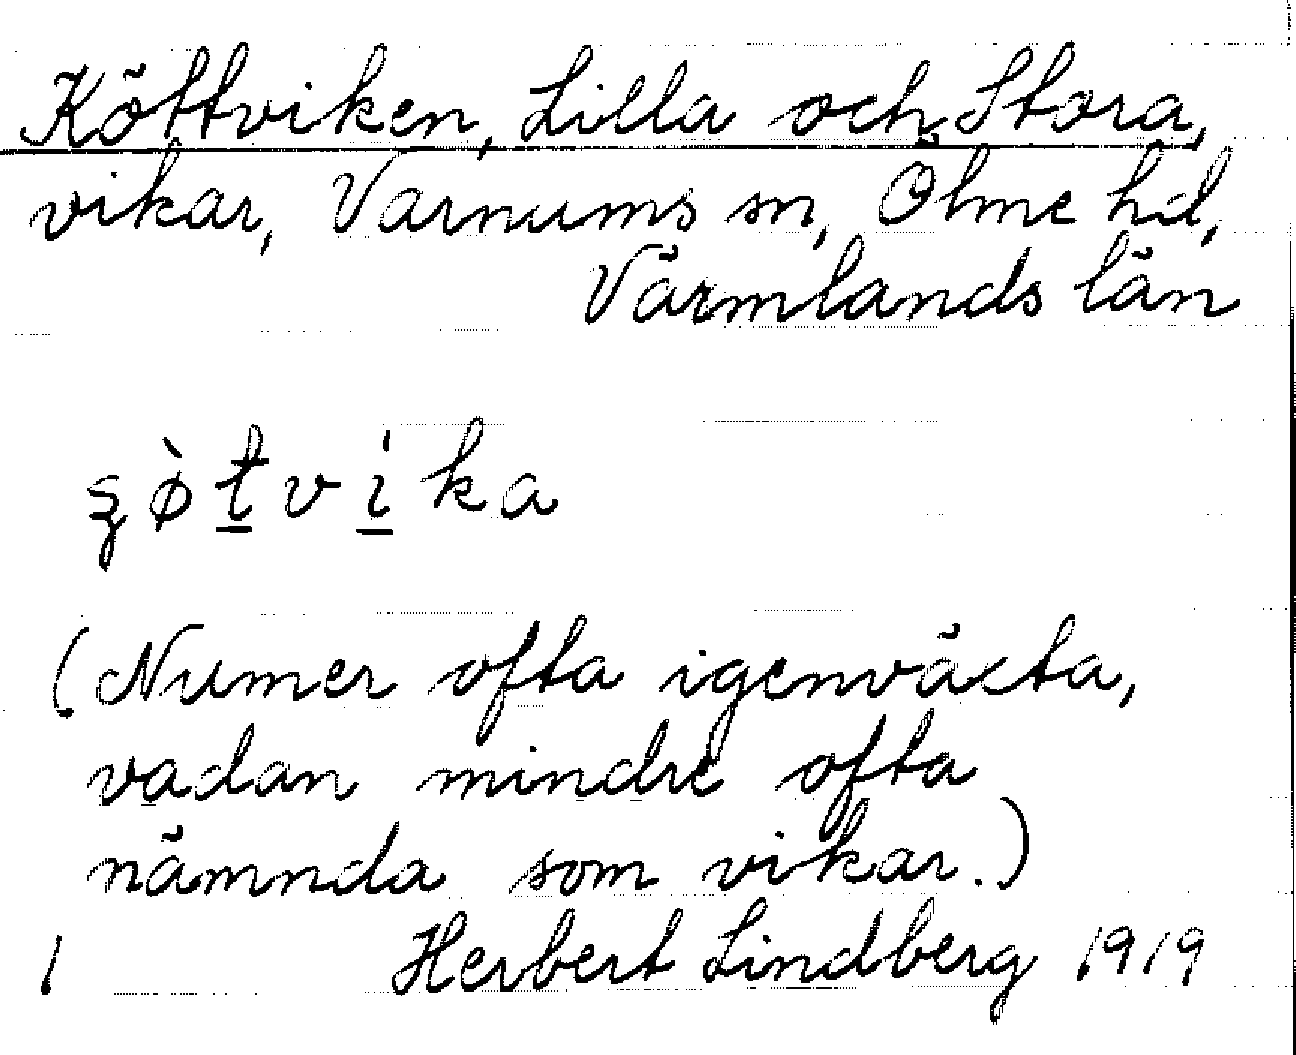 Köttviken, Lilla och Stora,
vikar, Varnums sn, Ölme hd,
Värmlands län
(Numer ofta igenväxta,
vadan mindre ofta
nämnda som vikar.)
1 Herbert Lindberg 1919